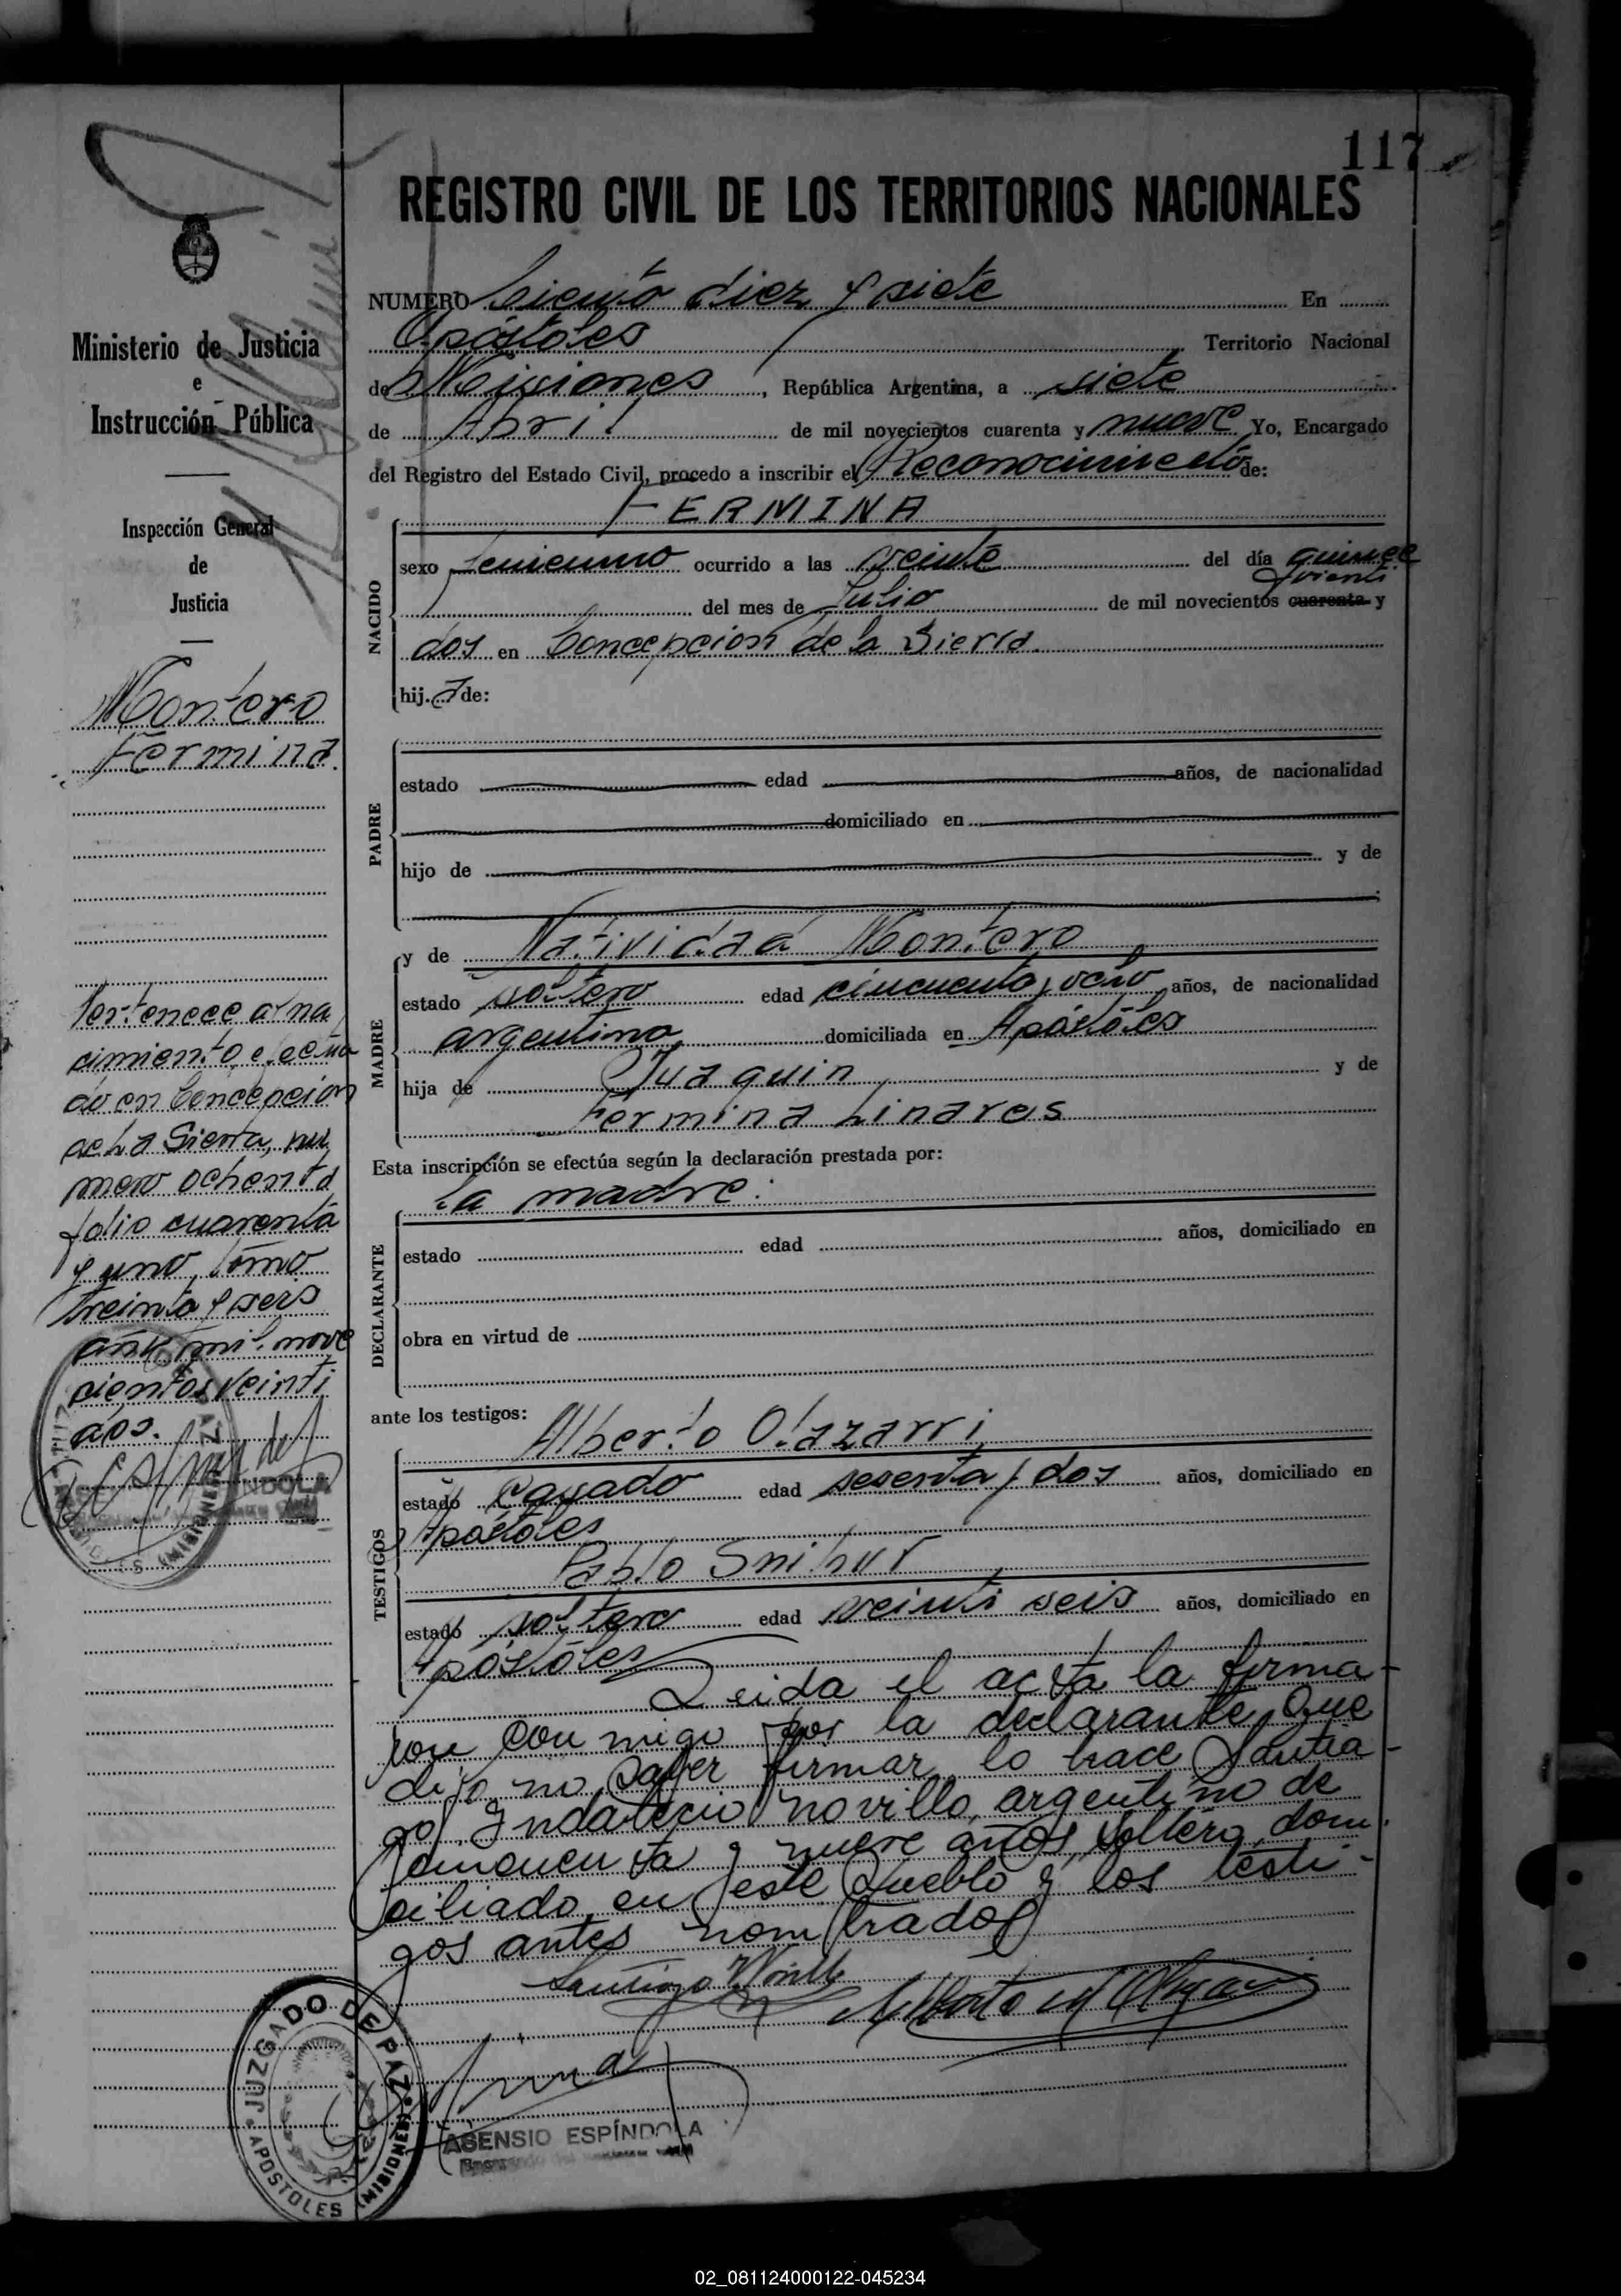 117
REGISTRO CIVIL DE LOS TERRITORIOS NACIONALES
NUMERO Ciento diez y siete En
Apóstoles Territorio Nacional
de Misiones, República Argentina, a siete
de Abril de mil novecientos cuarenta y nueve Yo, Encargado
del Registro del Estado Civil, procedo a inscribir el Reconocimiento de:
FERMINA
NACIDO
sexo femenino ocurrido a las veinte del día quince
veinti
del mes de Julio de mil novecientos cuarenta y
dos en Concepción de la Sierra.
hij.a de:
PADRE
estado edad años, de nacionalidad
domiciliado en
hijo de y de
MADRE
y de Natividad Montero
estado soltero edad cincuenta y ocho años, de nacionalidad
argentina domiciliada en Apóstoles
hija de Juaquin y de
Fermina Linares
Esta inscripción se efectúa según la declaración prestada por:
la madre:
DECLARANTE
estado edad años, domiciliado en
obra en virtud de
ante los testigos:
TESTIGOS
Alberto Olazarri
estado Casado edad sesenta y dos años, domiciliado en
Apóstoles
Pablo Snihur
estado soltero edad veinti seis años, domiciliado en
Apóstoles
Leida el acta la firma-
ron con migo por la declarante que
dijo no saber firmar lo hace Santia-
go Indalecio novillo, argentino de
cincuenta y nueve años, soltero, domi
ciliado en este Pueblo y los testi-
gos antes nombrados
Santiago Novillo
ASENSIO ESPÍNDOLA
JUZGADO DE PAZ
APOSTOLES (MISIONES)
Ministerio de Justicia
e
Instrucción Pública
Inspección General
de
Justicia
Montero
Fermina.
Pertenece al na
cimiento efectua
do en Concepcion
de La Sierra, nu
mero ochenta
folio cuarenta
y uno, tomo
treinta y seis
año mil nove
cientos veinti
dos.
02_081124000122-045234